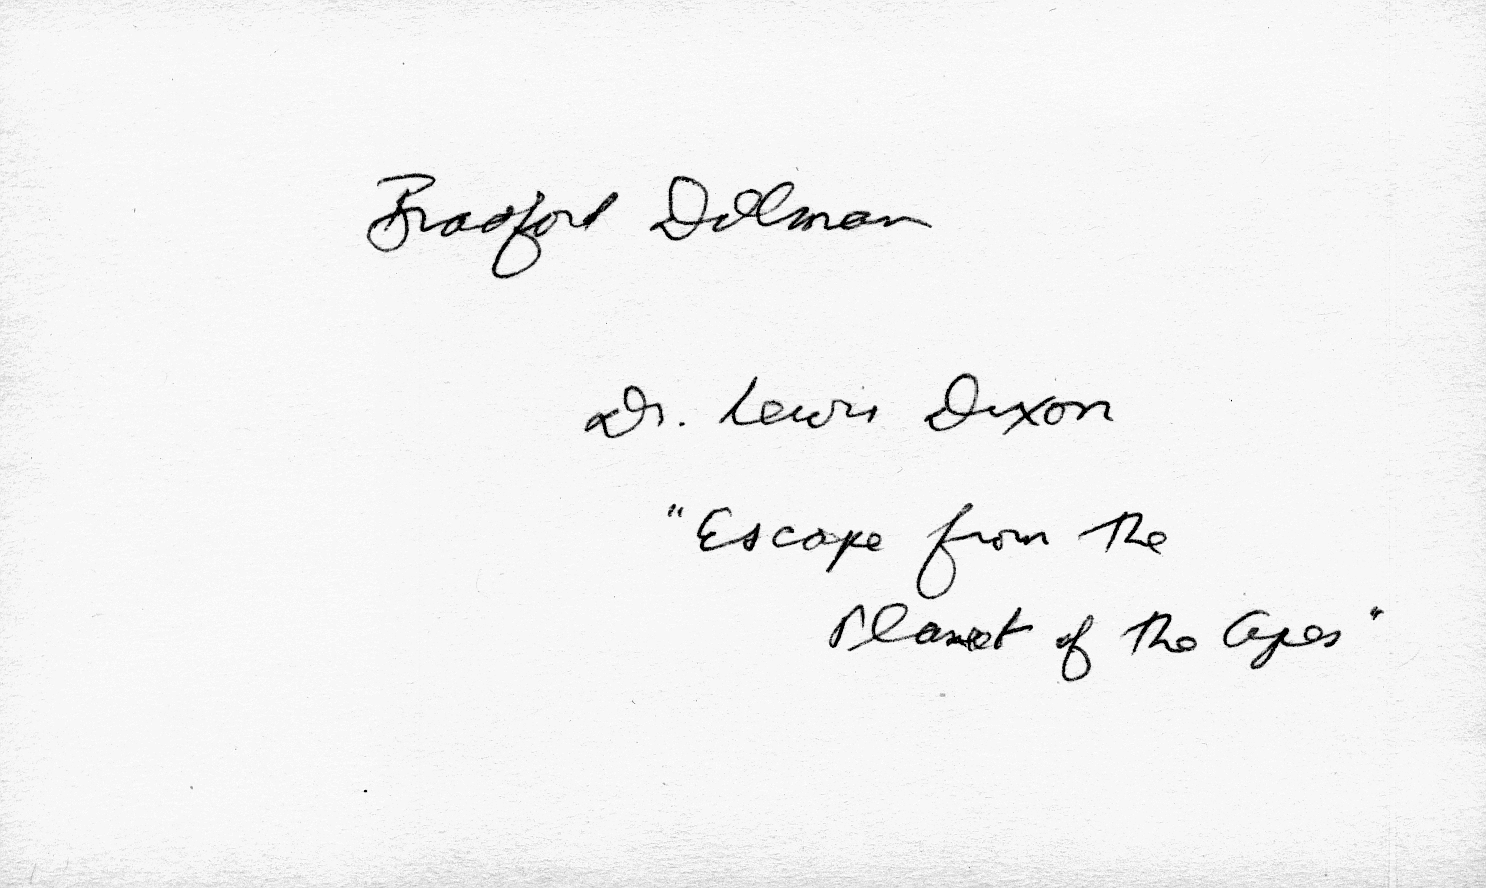 Bradford Dillman
Dr. Lewis Dixon
"Escape from the
Planet of the Apes"